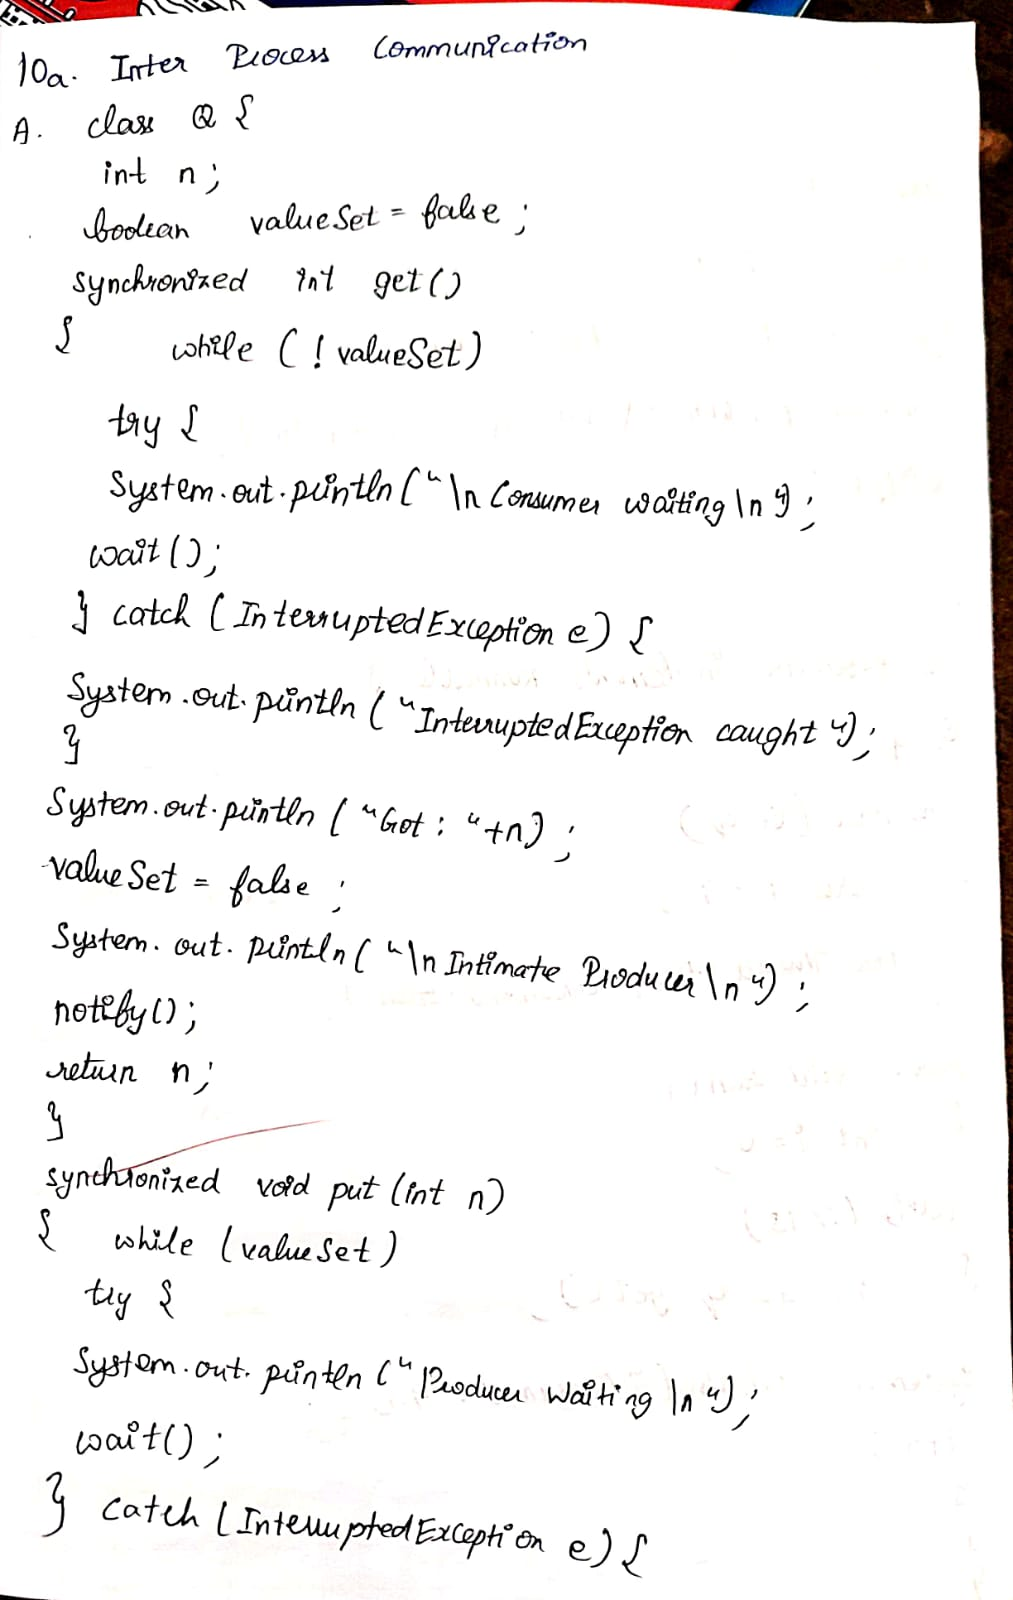 10a. Inter Process Communication
A. class Q {
int n;
boolean valueSet = false;
synchronized int get()
{ while (! valueSet)
try {
System.out.println("\n Consumer waiting \n");
wait();
} catch (InterruptedException e) {
System.out.println("InterruptedException caught");
}
System.out.println("Got : "+n);
valueSet = false;
System.out.println("\n Intimate Producer \n");
notify();
return n;
}
synchronized void put (int n)
{ while (valueSet)
try {
System.out.println("Producer Waiting \n");
wait();
} catch (InterruptedException e) {